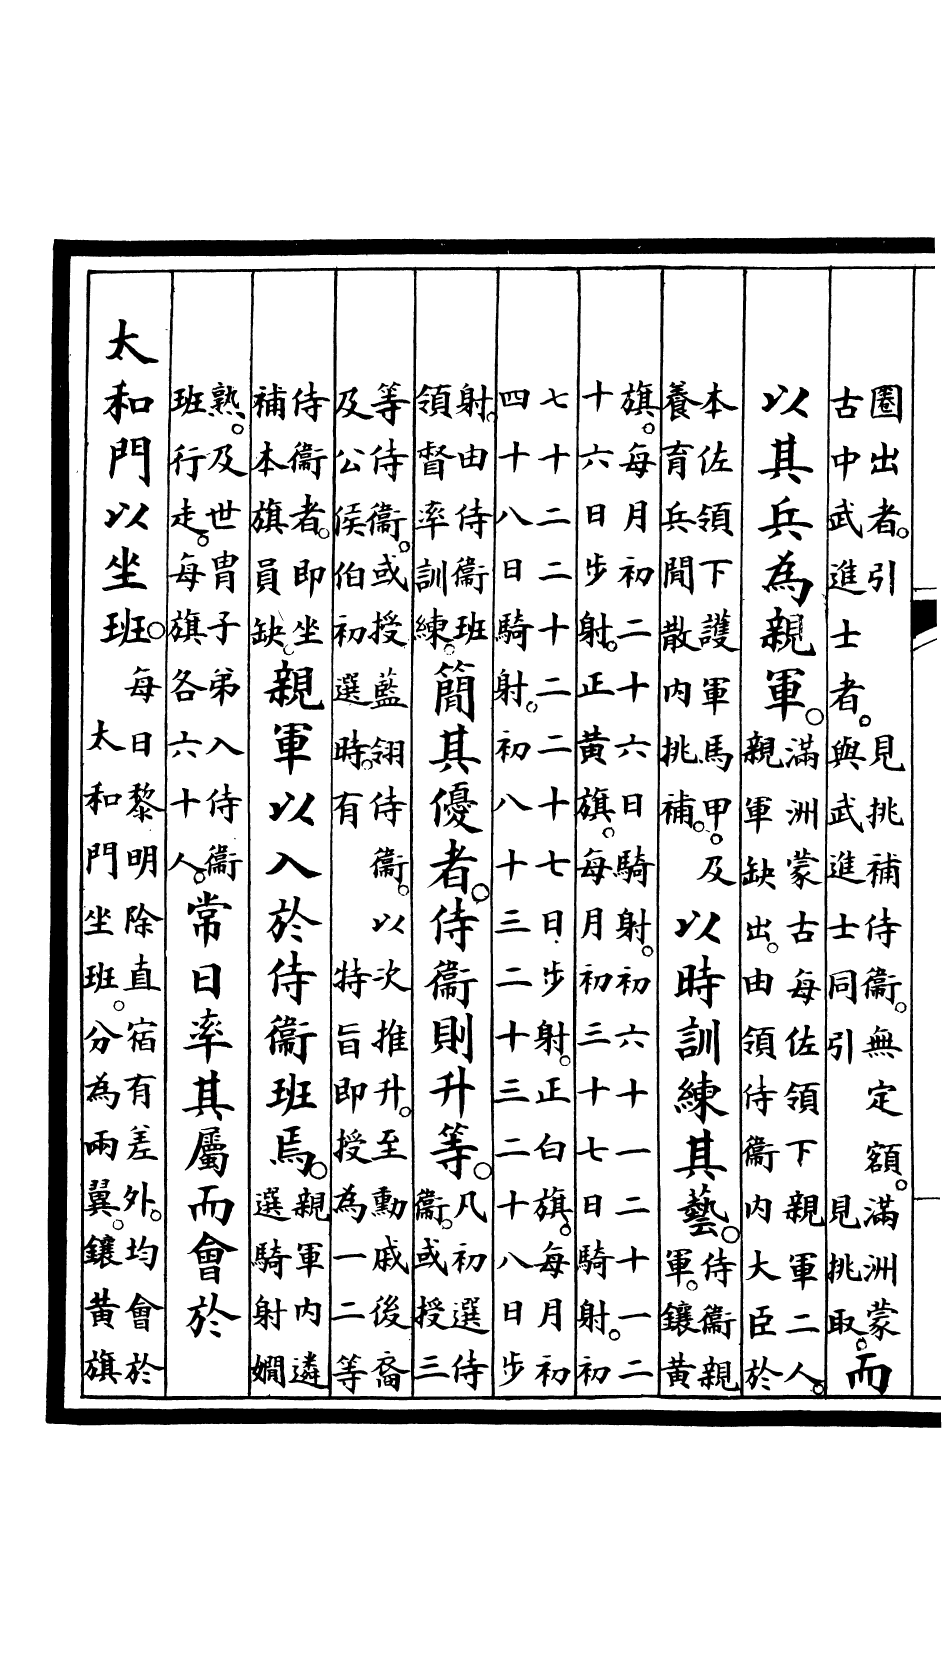 圈出者。引 見挑補侍衞。無定額。滿洲蒙
古中武進士者。與武進士同引 見挑取。而
以其兵為親軍。滿洲蒙古每佐領下親軍二人。
親軍缺出。由領侍衞內大臣於
本佐領下護軍馬甲。及
養育兵閒散內挑補。以時訓練其藝。侍衞親
軍。鑲黃
旗。每月初二十六日騎射。初六十一二十一二
十六日步射。正黃旗。每月初三十七日騎射。初
七十二二十二二十七日步射。正白旗。每月初
四十八日騎射。初八十三二十三二十八日步
射。由侍衞班
領督率訓練。簡其優者。侍衞則升等。凡初選侍
衞。或授三
等侍衞。或授藍翎侍衞。以次推升。至勳戚後裔
及公侯伯初選時。有 特旨即授為一二等
侍衞者。即坐
補本旗員缺。親軍以入於侍衞班焉。親軍內遴
選騎射嫺
熟。及世胄子弟入侍衞
班行走。每旗各六十人。常日率其屬而會於
太和門以坐班。每日黎明除直宿有差外。均會於
太和門坐班。分為兩翼。鑲黃旗